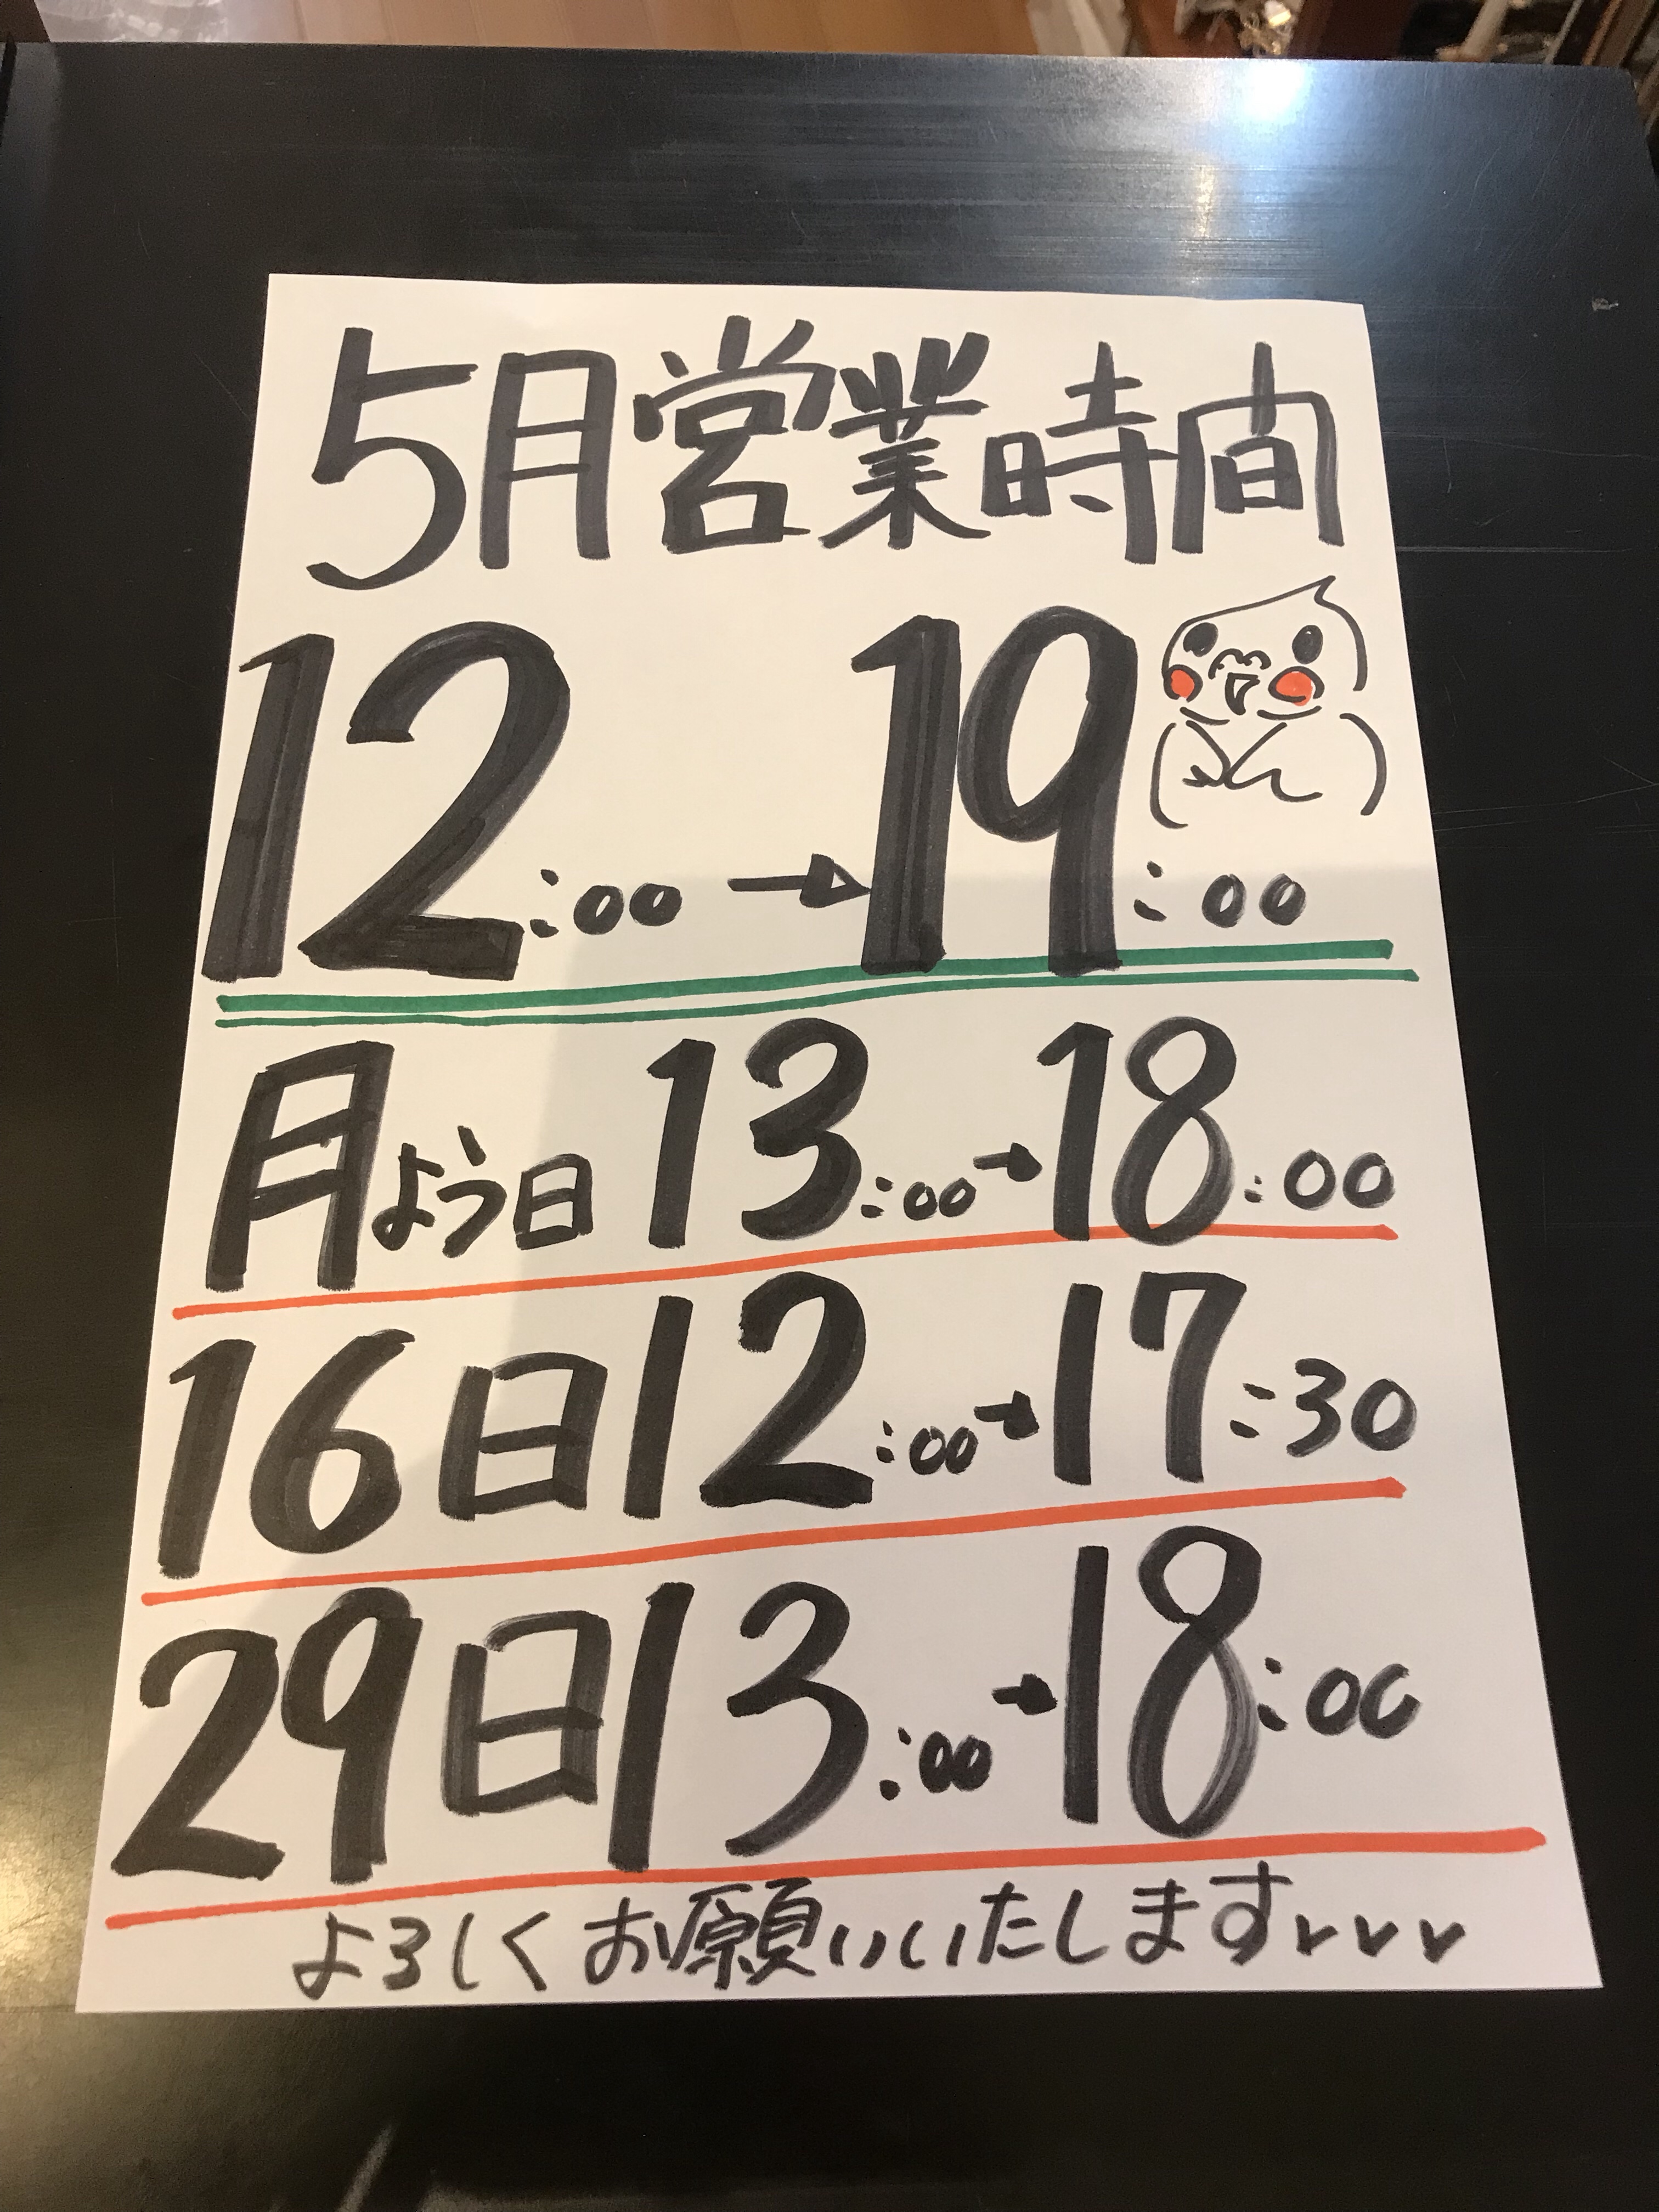 5月営業時間
12:00→19:00
月よう日 13:00→18:00
16日 12:00→17:30
29日 13:00→18:00
よろしくお願いいたします